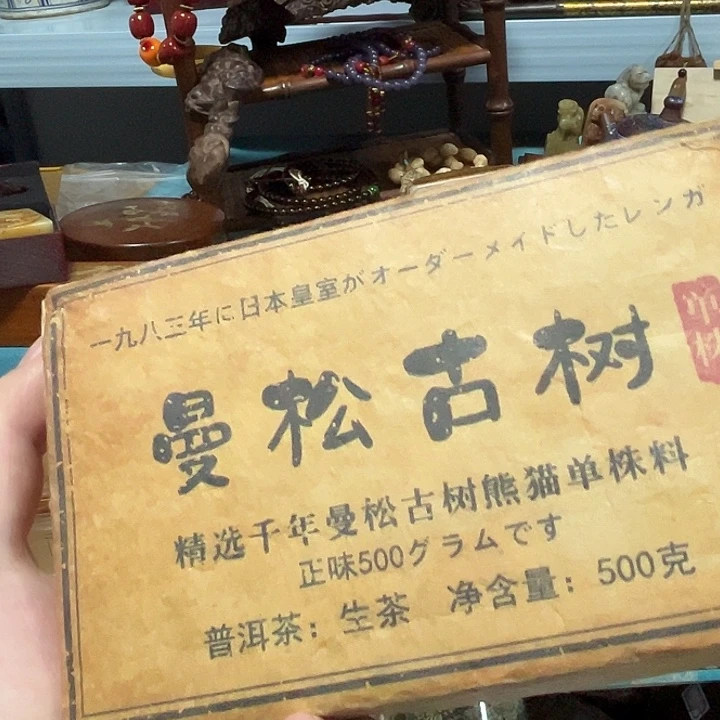 一九八三年に日本皇室がオーダーメイドしたレンガ
曼松古树
单株
精选千年曼松古树熊猫单株料
正味500グラムです
普洱茶：生茶 净含量：500克